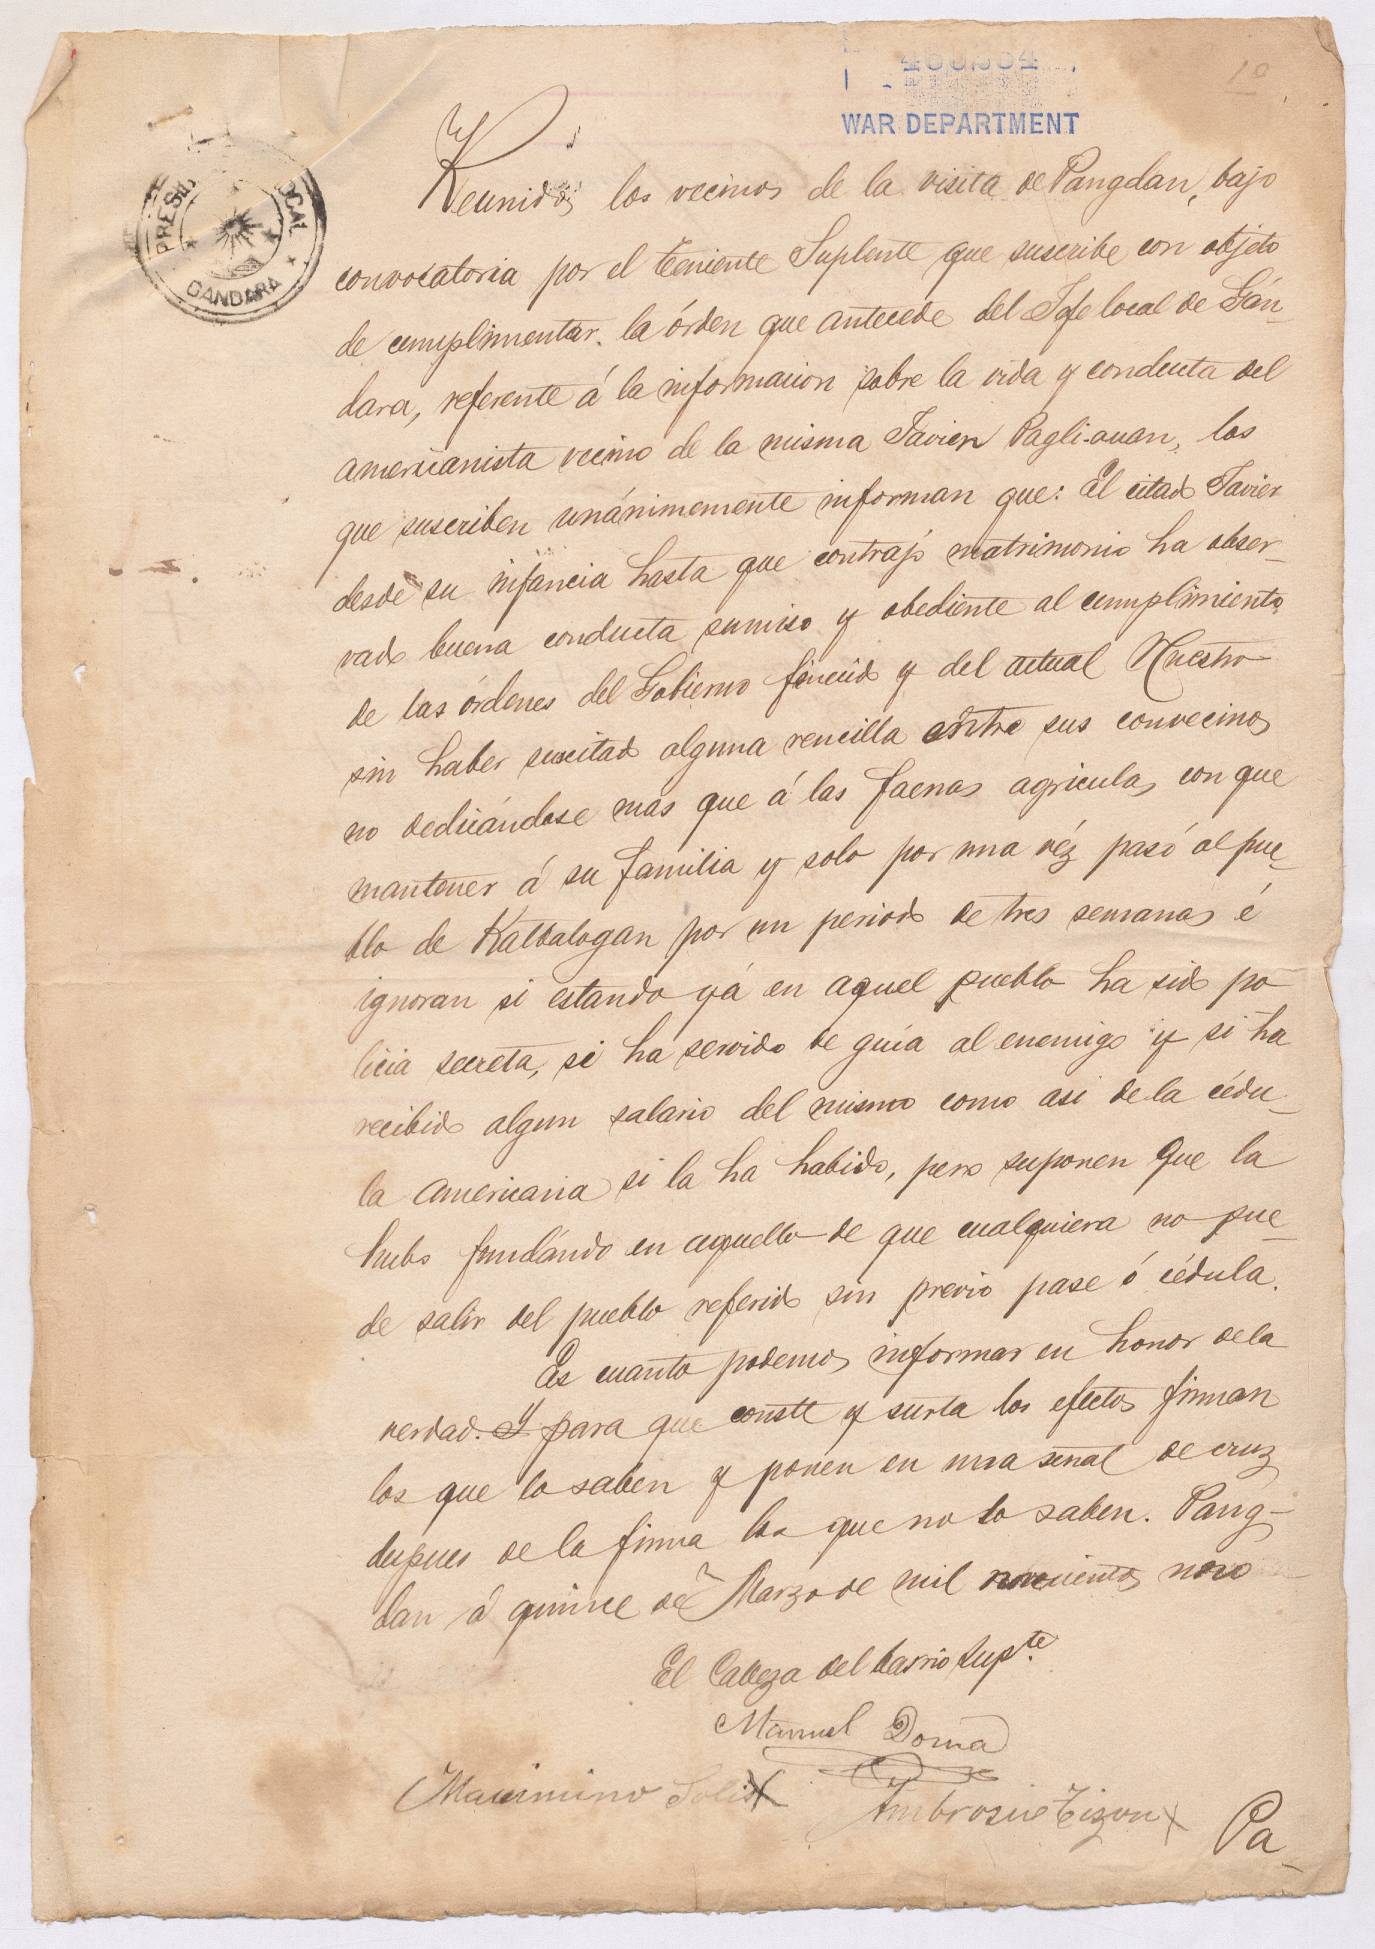 WAR DEPARTMENT
10
PRESID
OCAL
GANDARA
Reunidos los vecinos de la visita de Pangdan, bajo
convocatoria por el teniente Suplente que suscribe con objeto
de cumplimentar la órden que antecede del Jefe local de Gán-
dara, referente á la informacion sobre la vida y conducta del
americanista vecino de la misma Javier Pagli-auan, los
que suscriben unánimemente informan que: El citado Javier
desde su infancia hasta que contrajo matrimonio ha obser-
vado buena conducta sumiso y obediente al cumplimiento
de las órdenes del Gobierno fenecido y del actual Nuestro
sin haber sucitado alguna rencilla entre sus convecinos
no dedicándose mas que á las faenas agriculas con que
mantener á su familia y solo por una véz pasó al pue-
blo de Katbalogan por un periodo de tres semanas é
ignoran si estando yá en aquel pueblo ha sido po-
licia secreta, si ha servido de guia al enemigo y si ha
recibido algun salario del mismo como asi de la cédu-
la americana si la ha habido, pero suponen que la
hubo fundándo en aquello de que cualquiera no pue-
de salir del pueblo referido sin previo pase ó cédula.
Es cuanto podemos informar en honor de la
verdad. Y para que conste y surta los efectos firman
los que lo saben y ponen en una señal de cruz
despues de la firma los que no lo saben. Pang-
dan á quince de Marzo de mil novecientos uno
El Cabeza del barrio Supte.
Manuel Doma
Maximino Solis X
Ambrosio Tizon X
Pa-